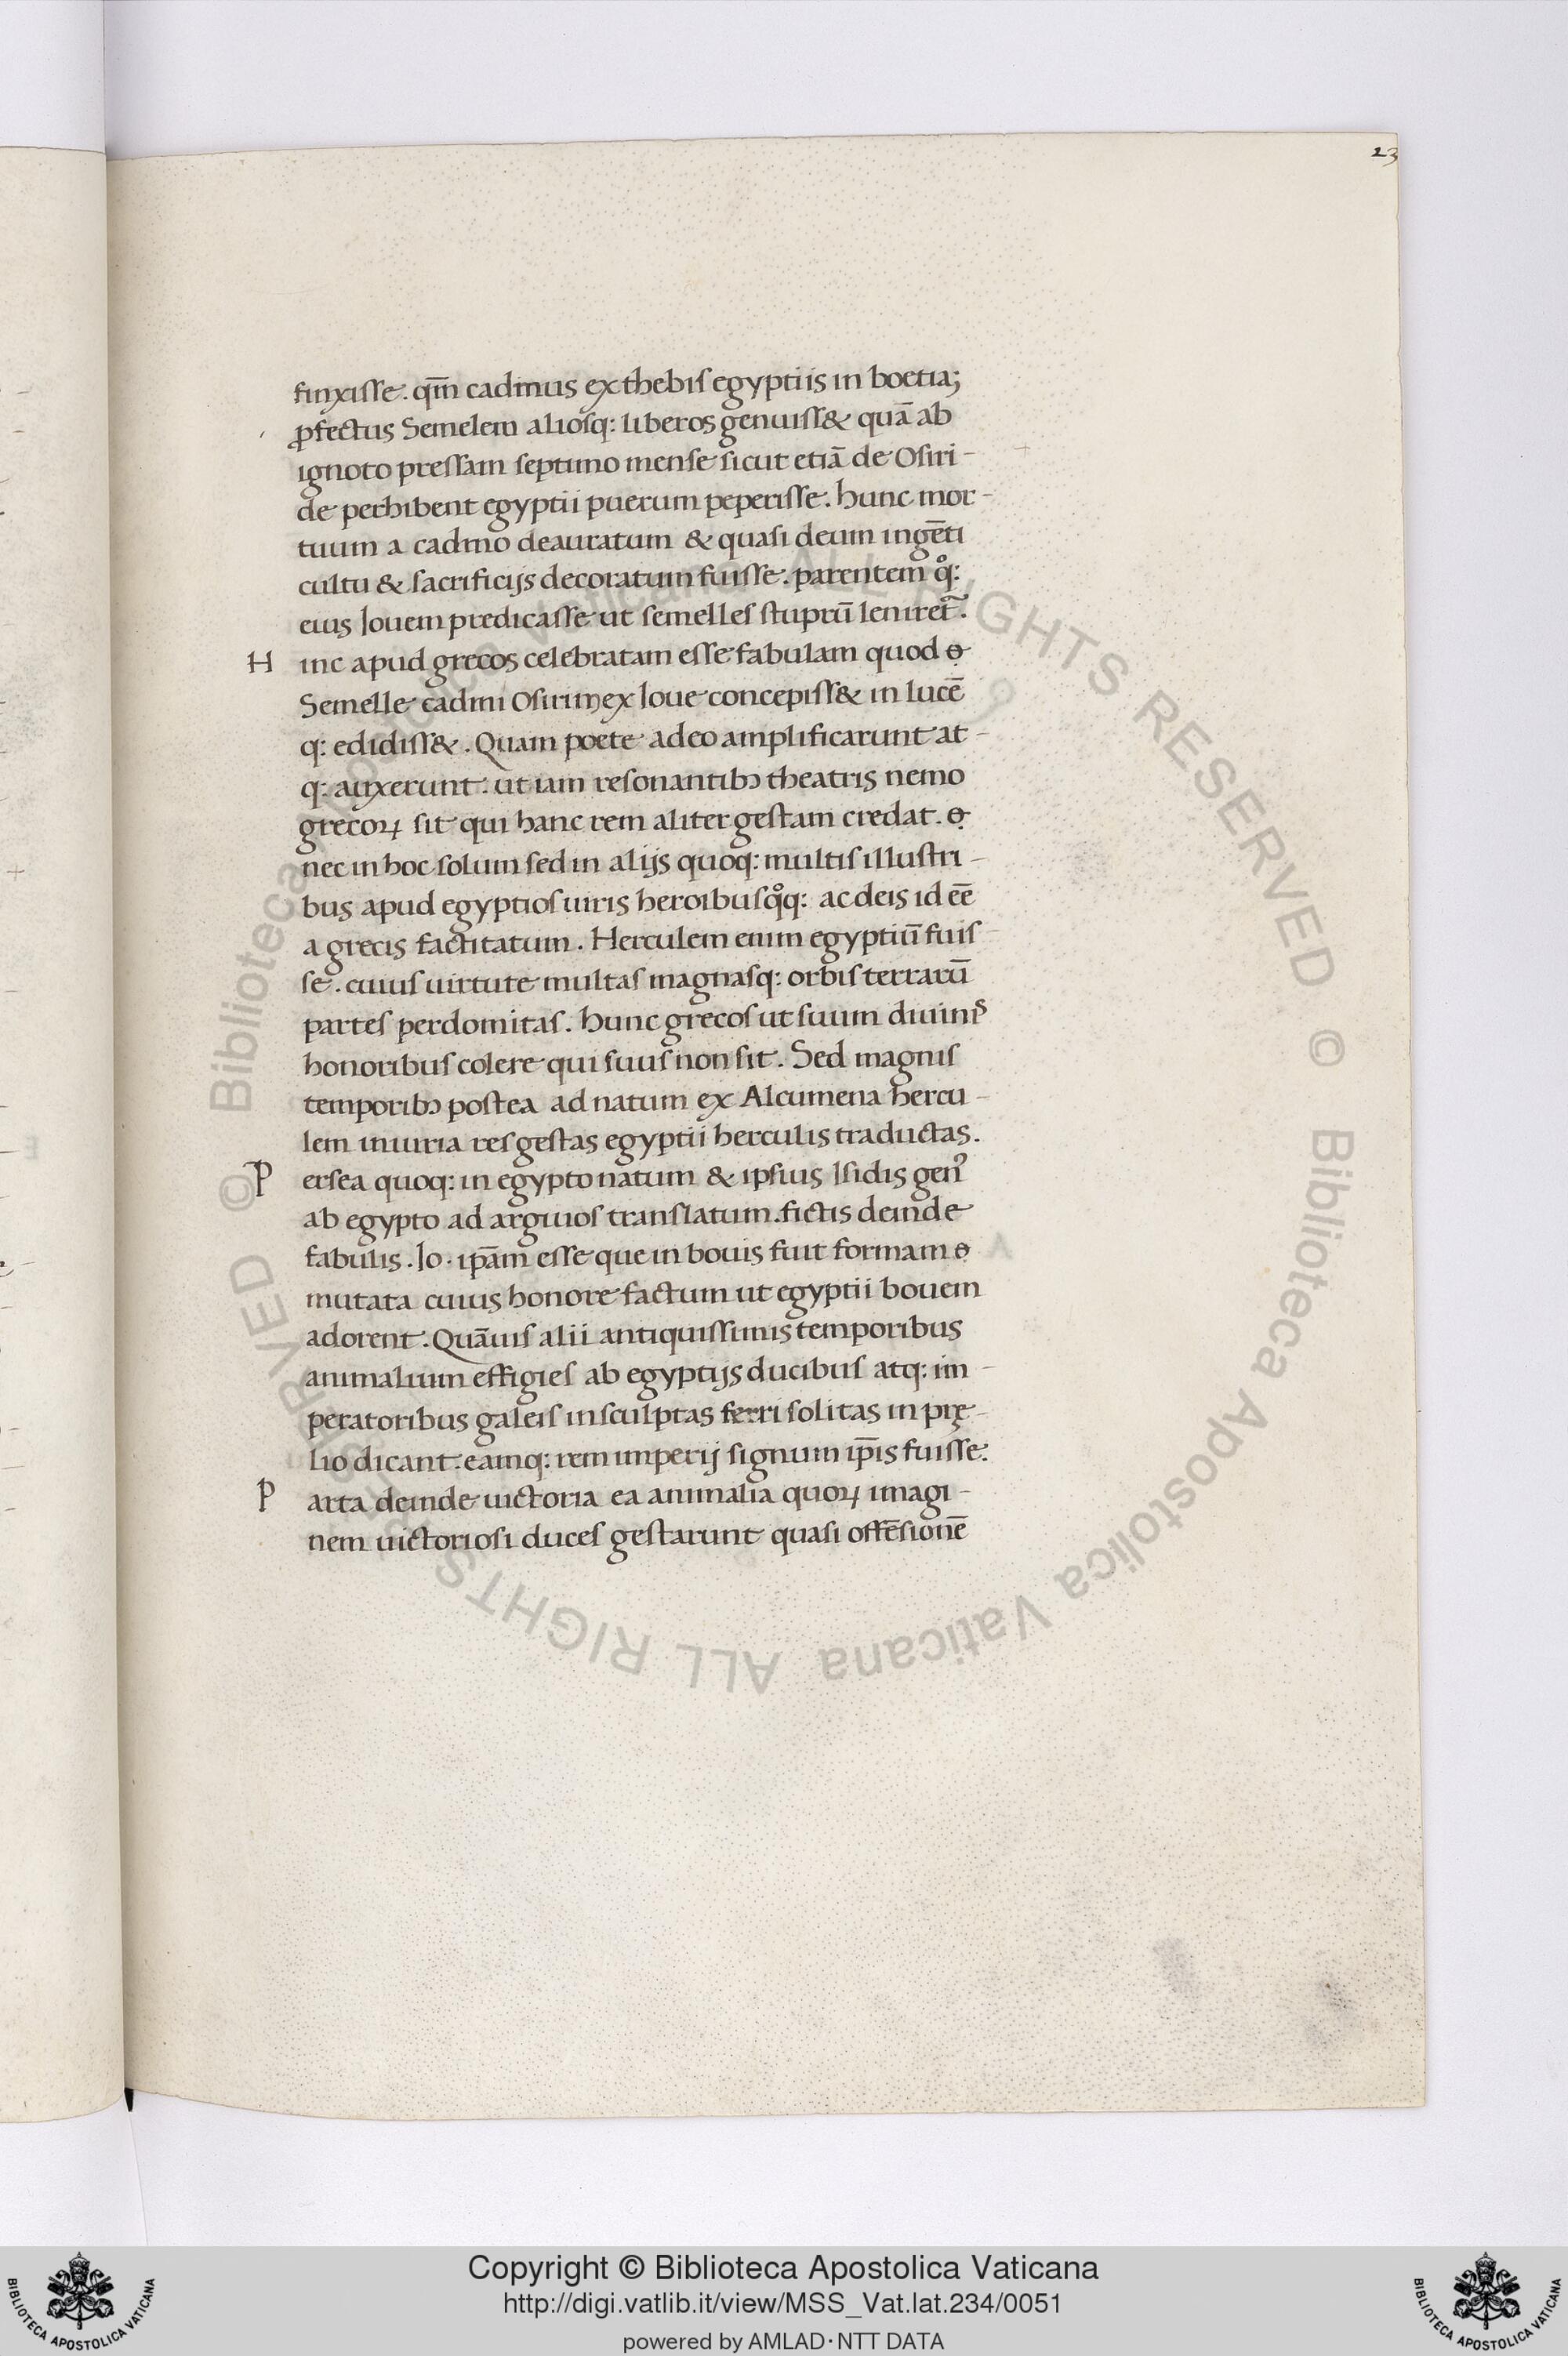 23
finxisse. qm̄ cadmus ex thebis egyptiis in boetia;
ꝓfectus Semelem aliosq: liberos genuiss& quā ab
ignoto pressam septimo mense sicut etiā de Osiri-
de perhibent egyptii puerum peperisse. hunc mor-
tuum a cadmo deauratum & quasi deum ingēti
cultu & sacrificijs decoratum fuisse. parentem q̊:
eius Iouem predicasse ut semelles stuprū leniret̃.
H inc apud grecos celebratam esse fabulam quod
Semelle cadmi Osirim ex Ioue concepiss& in lucē
q: edidiss&. Quam poete adeo amplificarunt at-
q: auxerunt. ut iam resonantibɔ theatris nemo
grecoꝝ sit qui hanc rem aliter gestam credat.
nec in hoc solum sed in alijs quoq: multis illustri-
bus apud egyptios uiris heroibusq̊q: ac deis id eē
a grecis factitatum. Herculem enim egyptiū fuis-
se. cuius uirtute multas magnasq: orbis terrarū
partes perdomitas. hunc grecos ut suum diuinis
honoribus colere qui suus non sit. Sed magnis
temporibɔ postea ad natum ex Alcumena hercu-
lem iniuria res gestas egyptii herculis traductas.
P ersea quoq: in egypto natum & ipsius Isidis genꝰ
ab egypto ad argiuos translatum. fictis deinde
fabulis. Io. ip̄am esse que in bouis fuit formam
mutata cuius honore factum ut egyptii bouem
adorent. Quāuis alii antiquissimis temporibus
animalium effigies ab egyptijs ducibus atq: im-
peratoribus galeis insculptas ferri solitas in prę-
lio dicant. eamq: rem imperij signum ip̄is fuisse.
P arta deinde uictoria ea animalia quoꝝ imagi-
nem uictoriosi duces gestarunt quasi offēsionē
© Biblioteca Apostolica Vaticana ALL RIGHTS RESERVED © Biblioteca Apostolica Vaticana ALL RIGHTS RESERVED
Copyright © Biblioteca Apostolica Vaticana
http://digi.vatlib.it/view/MSS_Vat.lat.234/0051
powered by AMLAD·NTT DATA
BIBLIOTECA APOSTOLICA VATICANA
BIBLIOTECA APOSTOLICA VATICANA